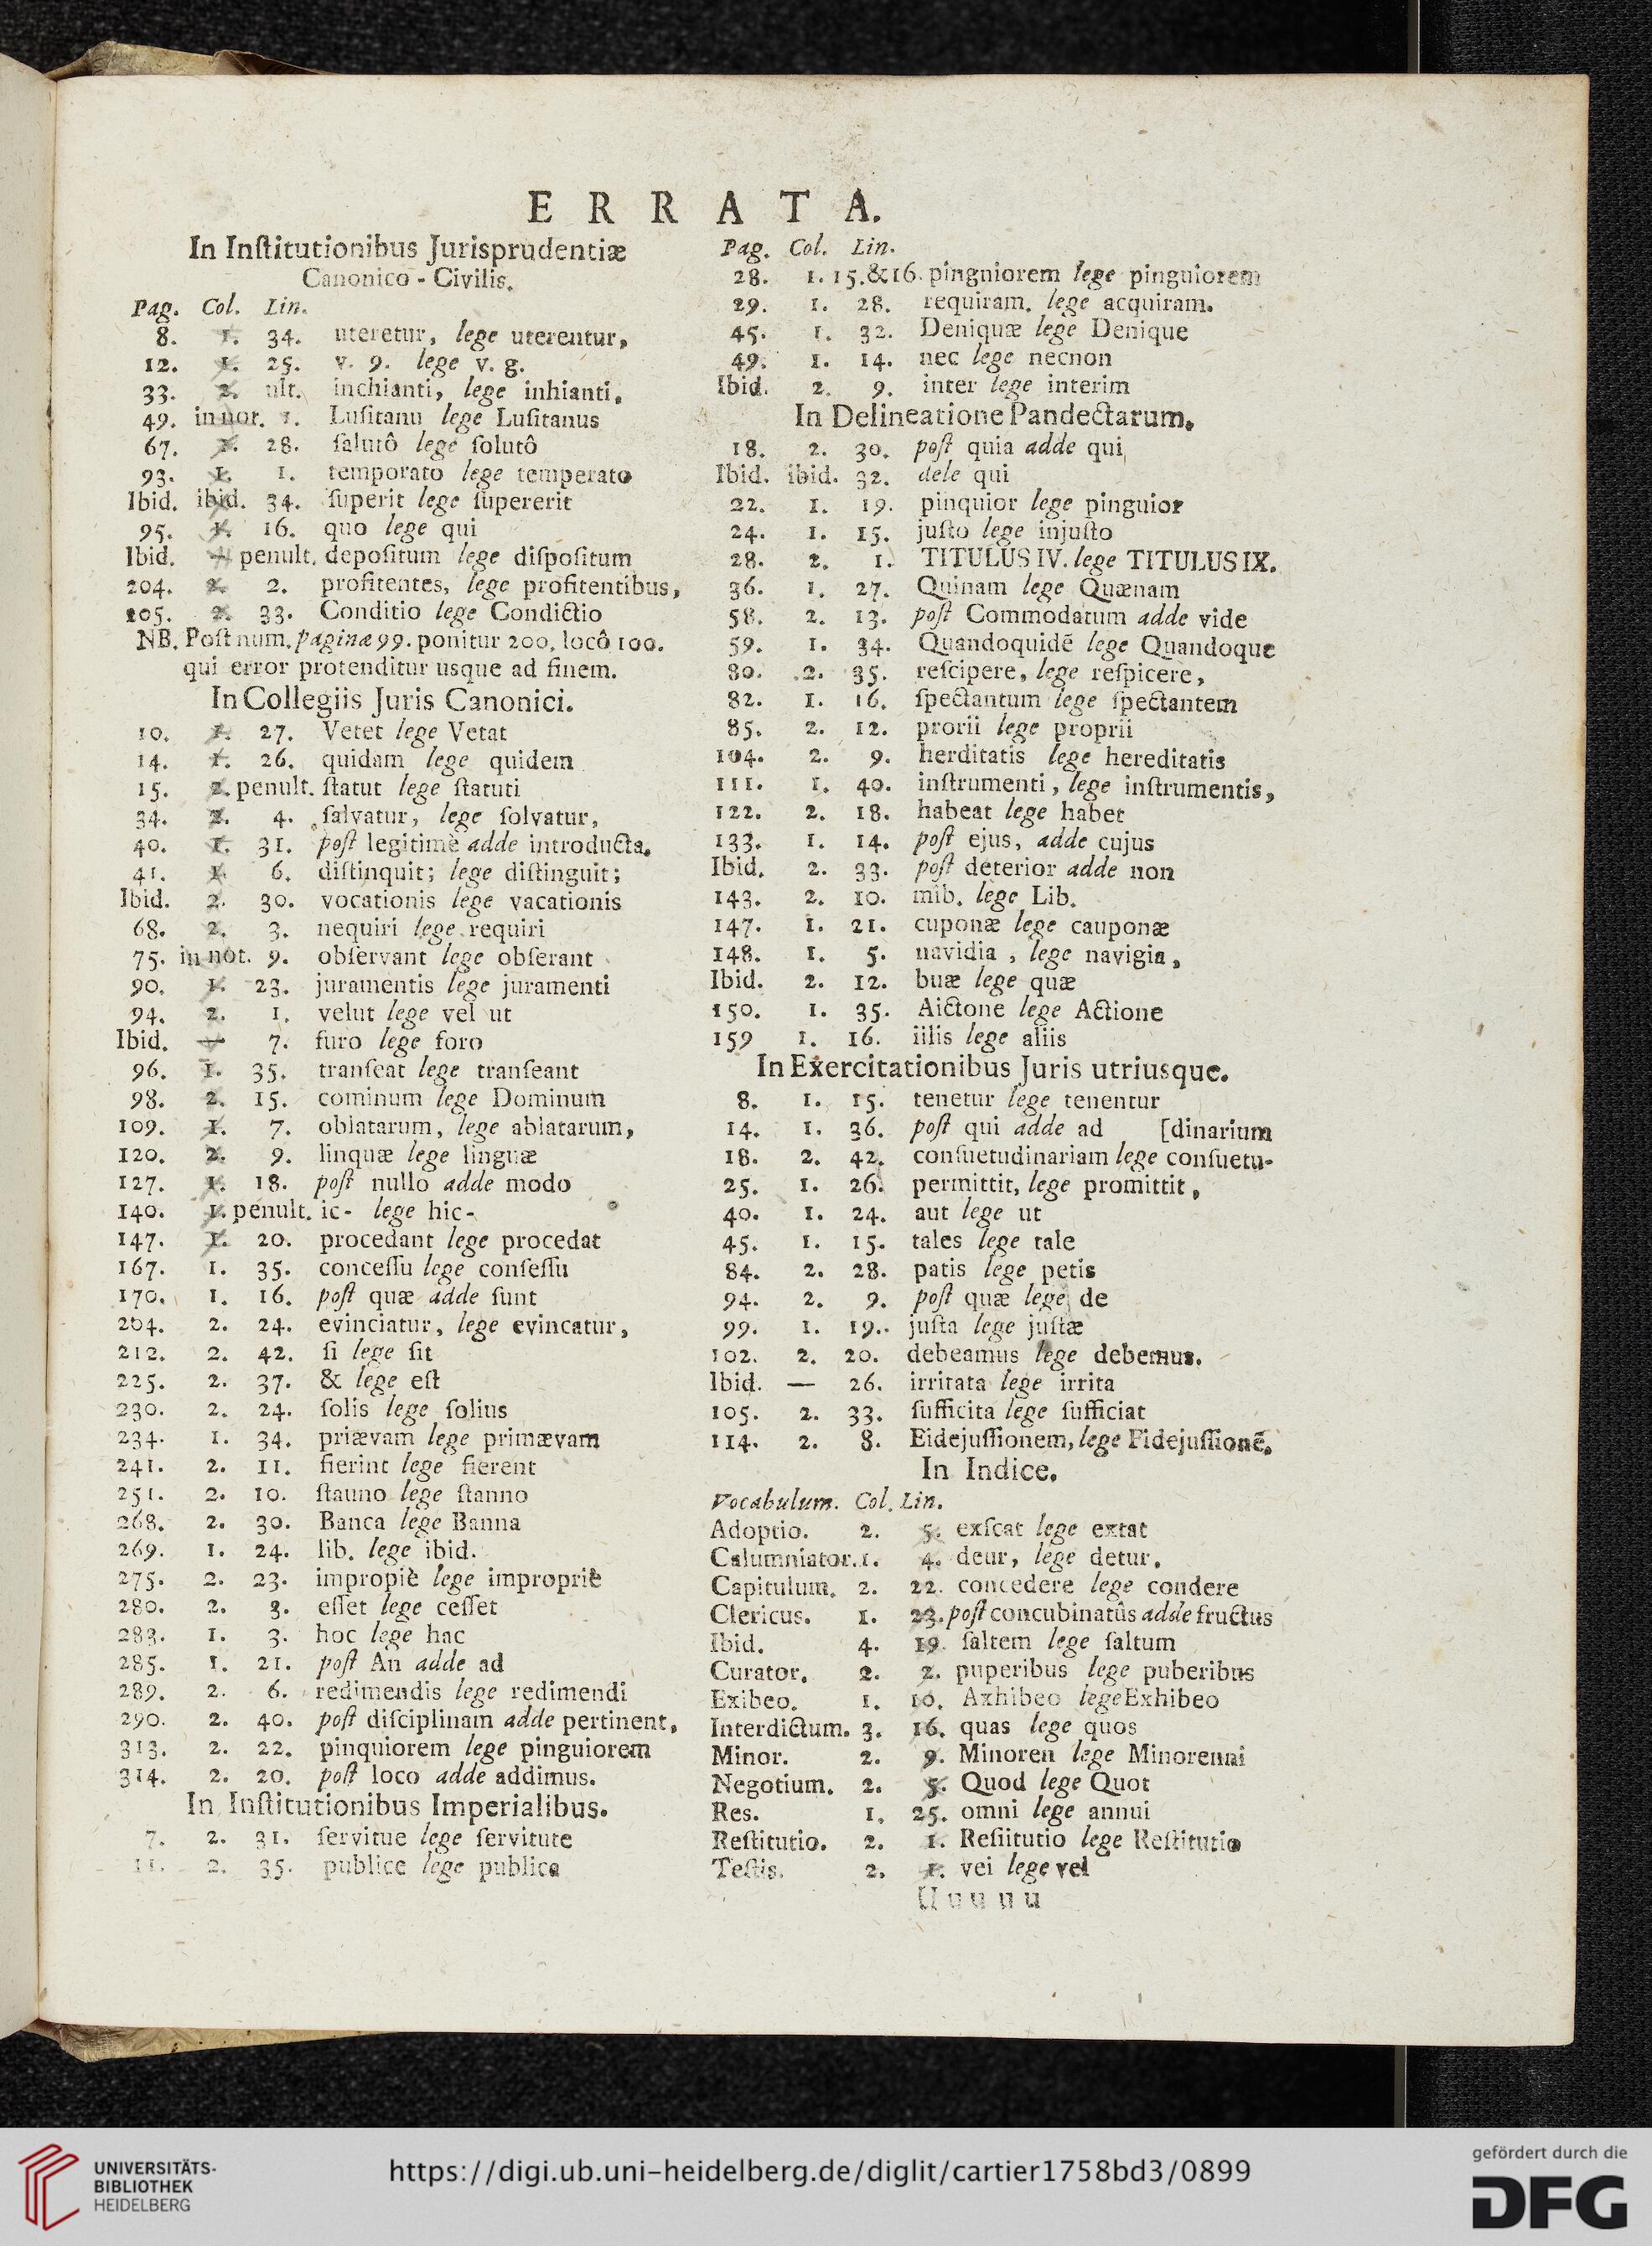 ERRATA.
In Inſtitutionibus Jurisprudentiæ
Canonico - Civilis.
Pag. Col. Lin.
8. 1. 34. uteretur, lege uterentur,
12. 1. 25. v. 9. lege v. g.
33. 2. ult. inchianti, lege inhianti.
49. in not. 1. Luſitanu lege Luſitanus
67. 28. ſalutô lege ſolutô
93. 1. 1. temporato lege temperato
Ibid. ibid. 34. ſuperit lege ſupererit
95. 1. 16. quo lege qui
Ibid. penult. depoſitum lege diſpoſitum
204. 2. 2. profitentes, lege profitentibus,
205. 2. 33. Conditio lege Condictio
NB. Poſt num. paginæ 99. ponitur 200. locô 100.
qui error protenditur usque ad finem.
In Collegiis Juris Canonici.
10. 1. 27. Vetet lege Vetat
14. 1. 26. quidam lege quidem
15. 2. penult. ſtatut lege ſtatuti
34. 2. 4. ſalvatur, lege ſolvatur,
40. 1. 31. poſt legitimè adde introducta.
41. 1. 6. diſtinquit; lege diſtinguit;
Ibid. 2. 30. vocationis lege vacationis
68. 2. 3. nequiri lege requiri
75. in not. 9. obſervant lege obſerant
90. 1. 23. juramentis lege juramenti
94. 2. 1. velut lege vel ut
Ibid. — 7. furo lege foro
96. 1. 35. tranſeat lege tranſeant
98. 2. 15. cominum lege Dominum
109. 1. 7. oblatarum, lege ablatarum,
120. 2. 9. linquæ lege linguæ
127. 1. 18. poſt nullo adde modo
140. 1. penult. ic- lege hic-
147. 1. 20. procedant lege procedat
167. 1. 35. conceſſu lege conſeſſu
170. 1. 16. poſt quæ adde ſunt
204. 2. 24. evinciatur, lege evincatur,
212. 2. 42. ſi lege ſit
225. 2. 37. & lege eſt
230. 2. 24. ſolis lege ſolius
234. 1. 34. priævam lege primævam
241. 2. 11. fierint lege fierent
251. 2. 10. ſtauno lege ſtanno
268. 2. 30. Banca lege Banna
269. 1. 24. lib. lege ibid.
275. 2. 23. impropiè lege impropriè
280. 2. 3. eſſet lege ceſſet
283. 1. 3. hoc lege hac
285. 1. 21. poſt An adde ad
289. 2. 6. redimendis lege redimendi
290. 2. 40. poſt diſciplinam adde pertinent,
313. 2. 22. pinquiorem lege pinguiorem
314. 2. 20. poſt loco adde addimus.
In Inſtitutionibus Imperialibus.
7. 2. 31. ſervitue lege ſervitute
11. 2. 35. publice lege publica
Pag. Col. Lin.
28. 1. 15.&16. pingniorem lege pinguiorem
29. 1. 28. requiram. lege acquiram.
45. 1. 32. Deniquæ lege Denique
49. 1. 14. nec lege necnon
Ibid. 2. 9. inter lege interim
In Delineatione Pandectarum.
18. 2. 30. poſt quia adde qui
Ibid. ibid. 32. dele qui
22. 1. 19. pinquior lege pinguior
24. 1. 15. juſto lege injuſto
28. 2. 1. TITULUS IV. lege TITULUS IX.
36. 1. 27. Quinam lege Quænam
58. 2. 13. poſt Commodatum adde vide
59. 1. 34. Quandoquidē lege Quandoque
80. 2. 35. reſcipere, lege reſpicere,
82. 1. 16. ſpectantum lege ſpectantem
85. 2. 12. prorii lege proprii
104. 2. 9. herditatis lege hereditatis
111. 1. 40. inſtrumenti, lege inſtrumentis,
122. 2. 18. habeat lege habet
133. 1. 14. poſt ejus, adde cujus
Ibid. 2. 33. poſt deterior adde non
143. 2. 10. mib. lege Lib.
147. 1. 21. cuponæ lege cauponæ
148. 1. 5. navidia, lege navigia,
Ibid. 2. 12. buæ lege quæ
150. 1. 35. Aictone lege Actione
159 1. 16. iilis lege aliis
In Exercitationibus Juris utriusque.
8. 1. 15. tenetur lege tenentur
14. 1. 36. poſt qui adde ad [dinarium
18. 2. 42. conſuetudinariam lege conſuetu-
25. 1. 26. permittit, lege promittit,
40. 1. 24. aut lege ut
45. 1. 15. tales lege tale
84. 2. 28. patis lege petis
94. 2. 9. poſt quæ lege de
99. 1. 19. juſta lege juſtæ
102. 2. 20. debeamus lege debemus.
Ibid. — 26. irritata lege irrita
105. 2. 33. ſufficita lege ſufficiat
114. 2. 8. Eidejuſſionem, lege Fidejuſſionē.
In Indice.
Vocabulum. Col. Lin.
Adoptio. 2. 5. exſcat lege extat
Calumniator. 1. 4. deur, lege detur.
Capitulum. 2. 22. concedere lege condere
Clericus. 1. 23. poſt concubinatûs adde fructus
Ibid. 4. 19. ſaltem lege ſaltum
Curator. 2. 2. puperibus lege puberibus
Exibeo. 1. 10. Axhibeo lege Exhibeo
Interdictum. 3. 16. quas lege quos
Minor. 2. 9. Minoren lege Minorenni
Negotium. 2. 5. Quod lege Quot
Res. 1. 25. omni lege annui
Reſtitutio. 2. 1. Reſiitutio lege Reſtitutio
Teſtis. 2. 1. vei lege vel
Uuuuu
UNIVERSITÄTS-
BIBLIOTHEK
HEIDELBERG
https://digi.ub.uni-heidelberg.de/diglit/cartier1758bd3/0899
gefördert durch die
DFG